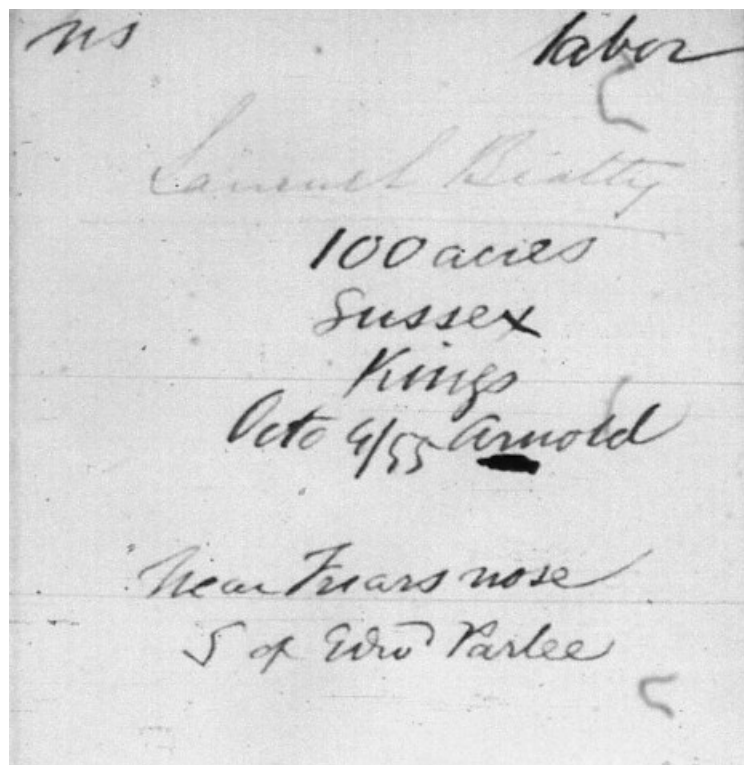 ns labor
Samuel Beatty
100 acres
Sussex
Kings
Octo 9/55 Arnold
Near Friars nose
S of Edwd Parlee